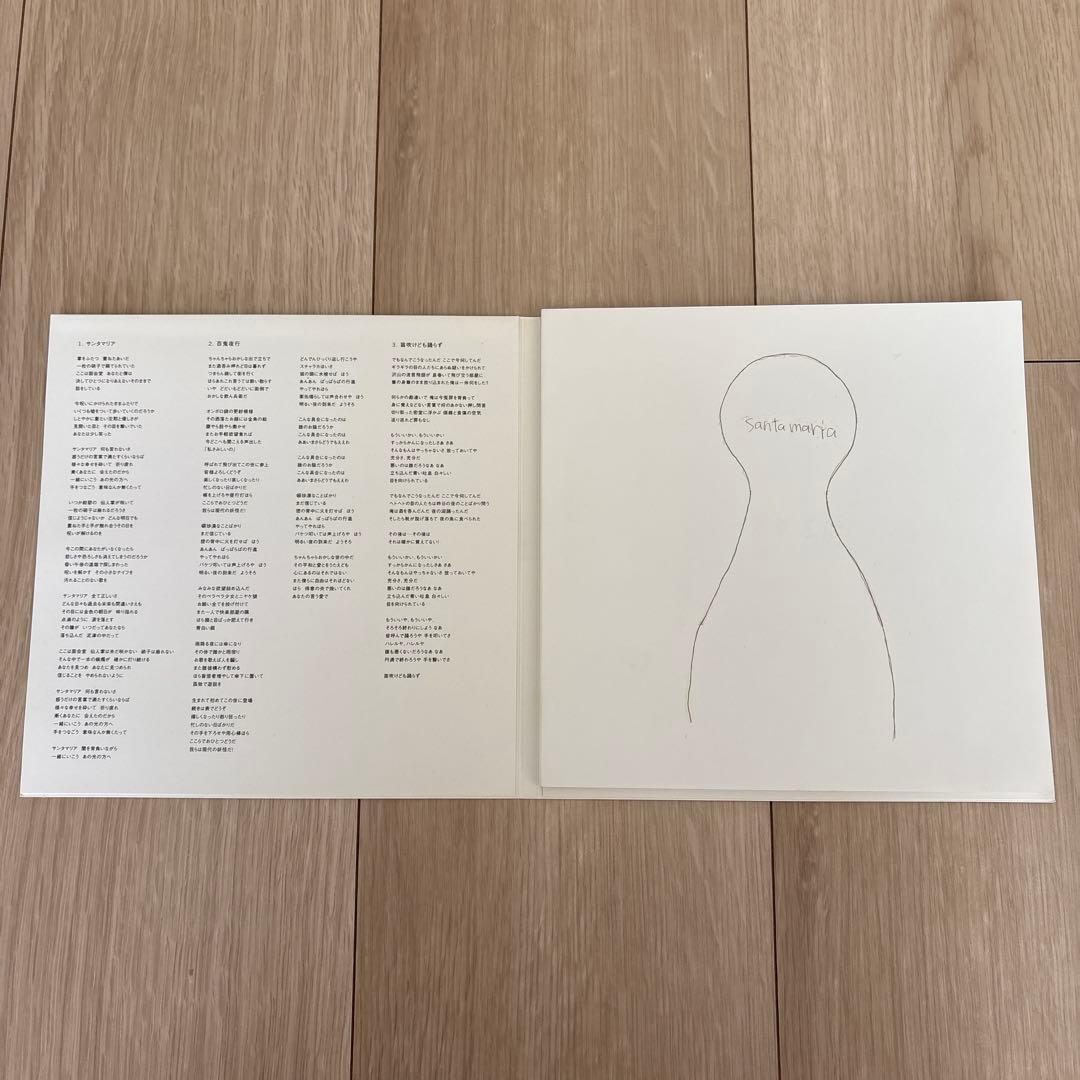 1. サンタマリア
2. 百鬼夜行
3. 笛吹けども踊らず
santa maria